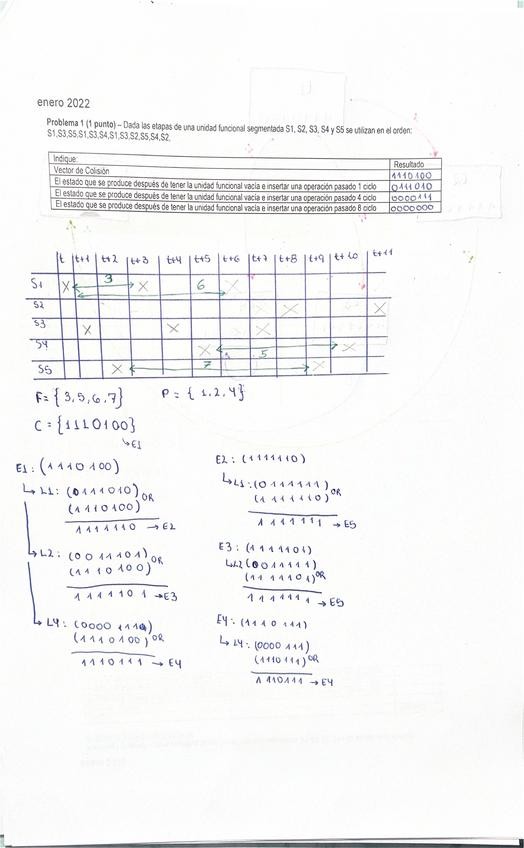 enero 2022
Problema 1 (1 punto) – Dada las etapas de una unidad funcional segmentada S1, S2, S3, S4 y S5 se utilizan en el orden:
S1,S3,S5,S1,S3,S4,S1,S3,S2,S5,S4,S2,
Indique: Resultado
Vector de Colisión 1110100
El estado que se produce después de tener la unidad funcional vacía e insertar una operación pasado 1 ciclo 0111010
El estado que se produce después de tener la unidad funcional vacía e insertar una operación pasado 4 ciclo 0000111
El estado que se produce después de tener la unidad funcional vacía e insertar una operación pasado 8 ciclo 0000000
t t+1 t+2 t+3 t+4 t+5 t+6 t+7 t+8 t+9 t+10 t+11
S1 X 3 X 6 X
S2 X X
S3 X X X
S4 X 5 X
S5 X 7 X
F= {3,5,6,7} P = { 1,2,4}
C = {1110100}
↳E1
E1: (1110100)
↳ L1: (0111010) OR
(1110100)
1111110 → E2
↳ L2: (0011101) OR
(1110100)
1111101 → E3
↳ L4: (0000111) OR
(1110100)
1110111 → E4
E2: (1111110)
↳L1: (0111111) OR
(1111110)
1111111 → E5
E3: (1111101)
↳L2 (0011111)
(1111101) OR
1111111 → E5
E4: (1110111)
↳ L4: (0000111)
(1110111) OR
1110111 → E4